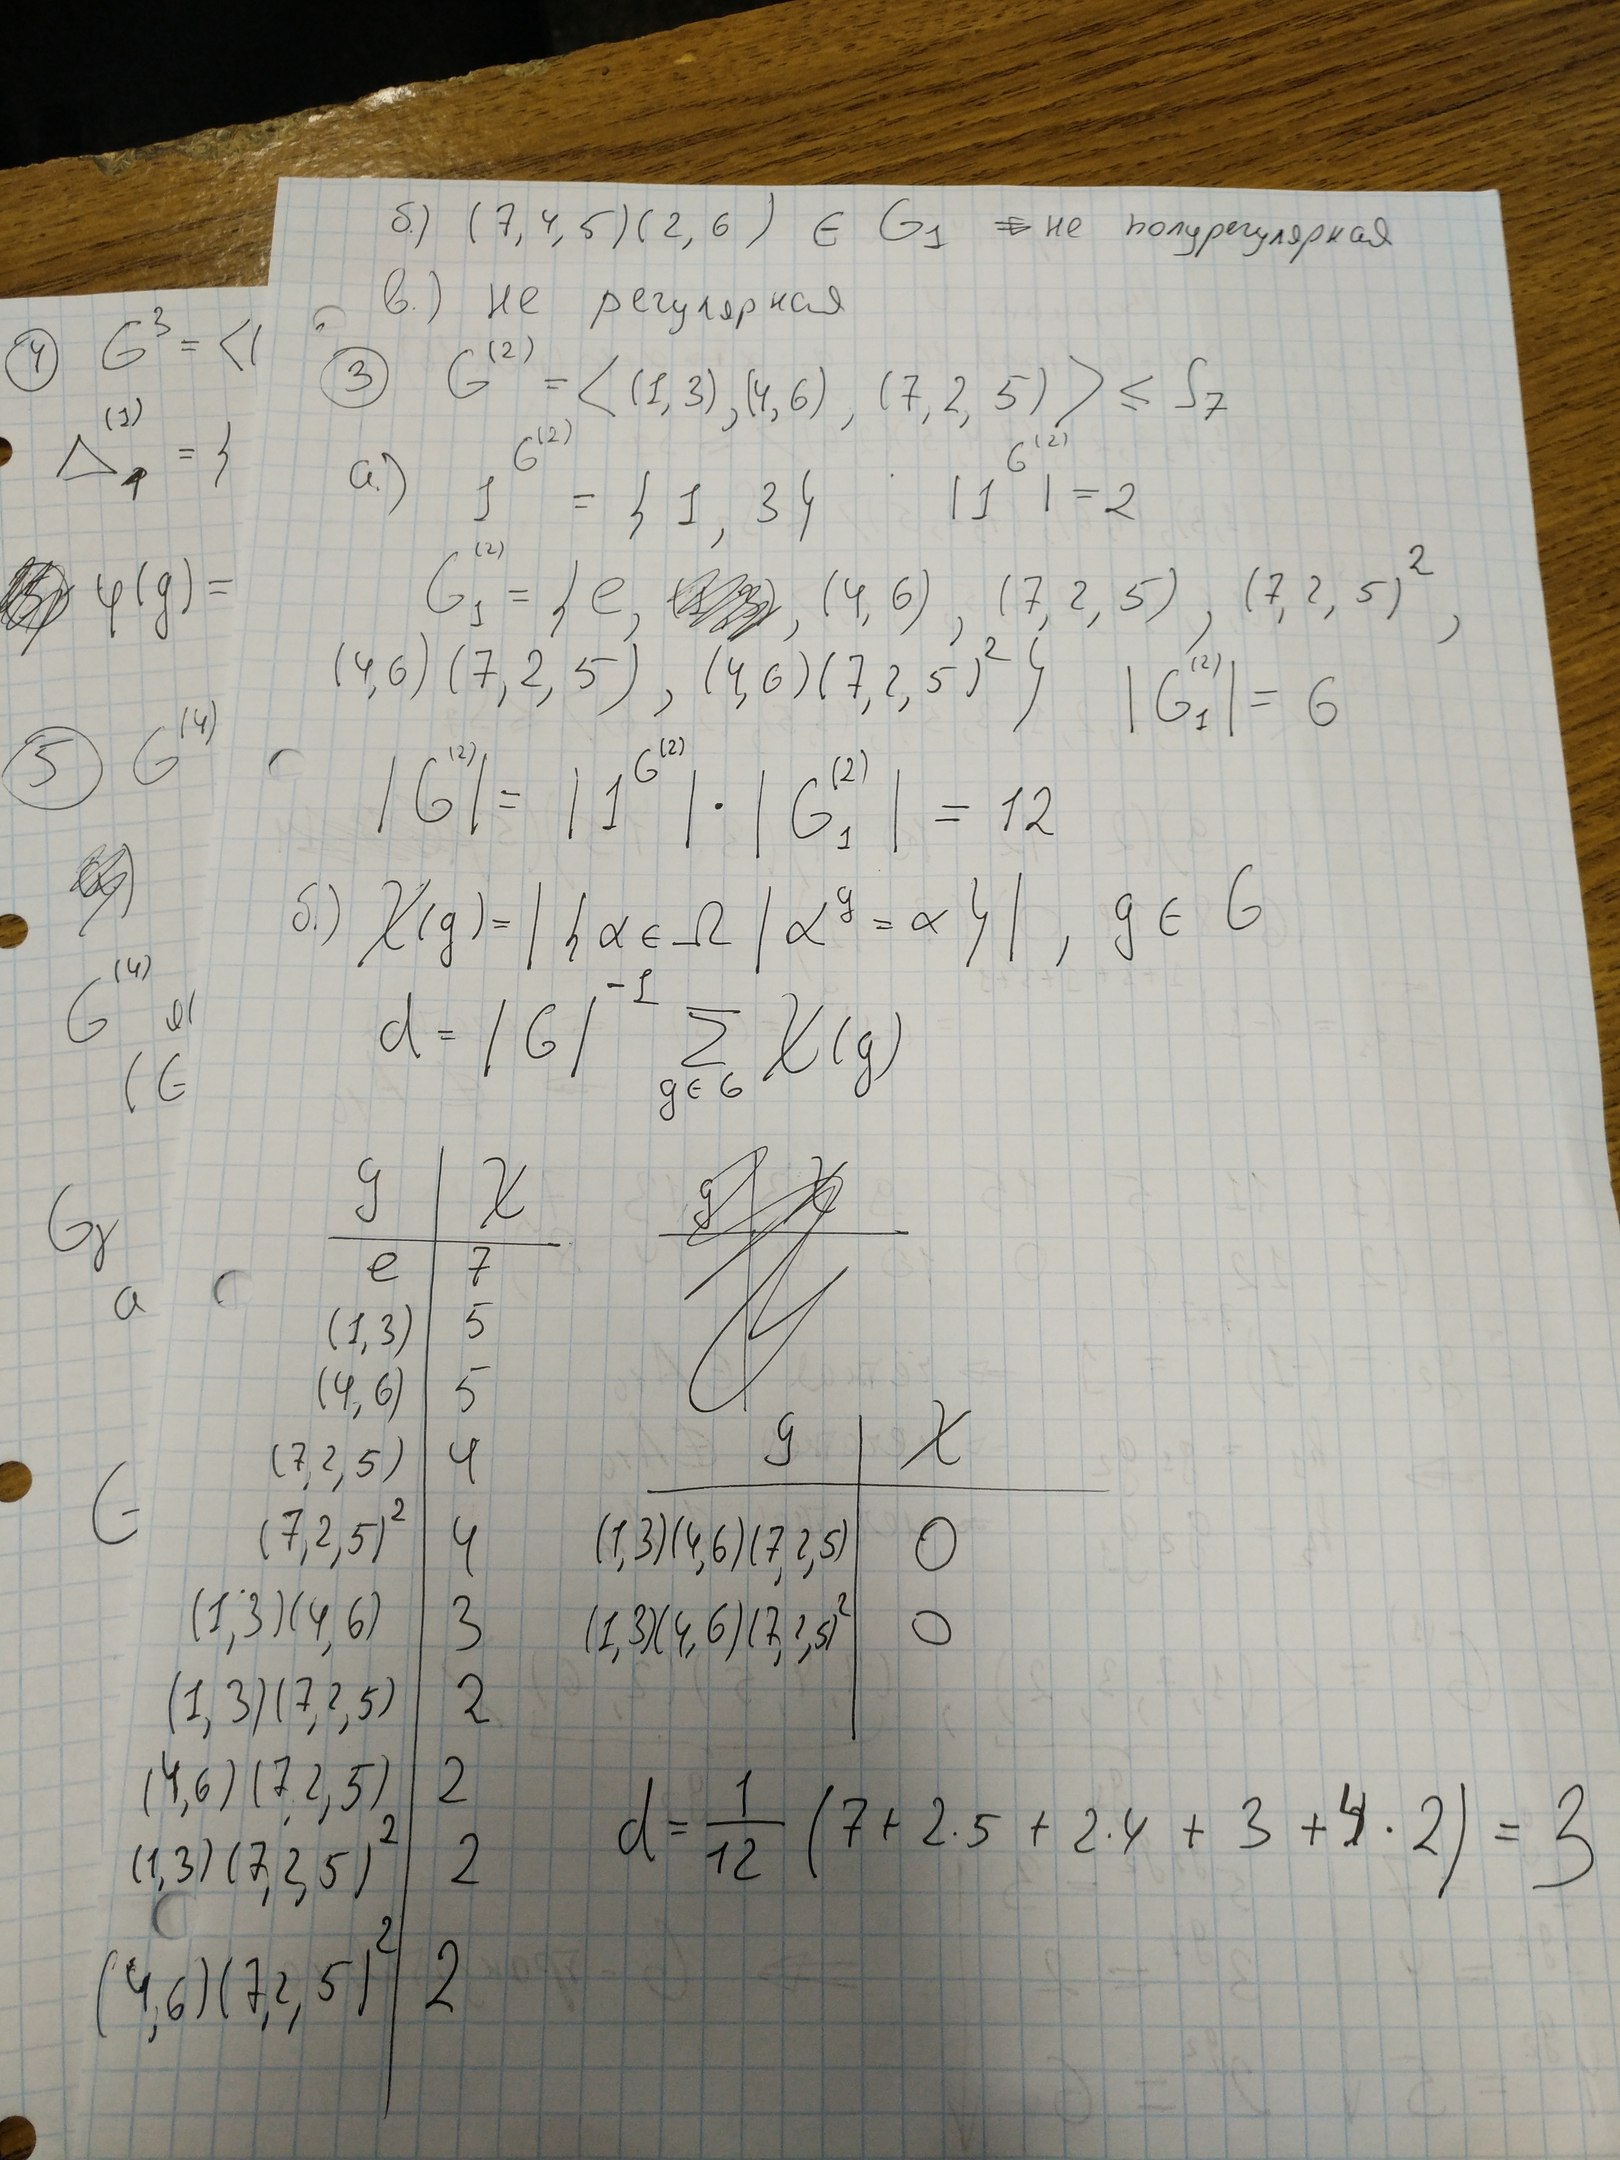 б.) (7,4,5)(2,6) ∈ G₁ ⇒ не полурегулярная
в.) не регулярная
③ G⁽²⁾ = <(1,3),(4,6),(7,2,5)> ≤ S₇
а.) 1^{G⁽²⁾} = {1, 3} |1^{G⁽²⁾}| = 2
G₁⁽²⁾ = {e, , (4,6), (7,2,5), (7,2,5)²,
(4,6)(7,2,5), (4,6)(7,2,5)²} |G₁⁽²⁾| = 6
|G⁽²⁾| = |1^{G⁽²⁾}| · |G₁⁽²⁾| = 12
б.) χ(g) = |{α ∈ Ω | α^g = α}|, g ∈ G
d = |G|⁻¹ Σ_{g∈G} χ(g)
g | χ
e | 7
(1,3) | 5
(4,6) | 5
(7,2,5) | 4
(7,2,5)² | 4
(1,3)(4,6) | 3
(1,3)(7,2,5) | 2
(4,6)(7,2,5) | 2
(1,3)(7,2,5)² | 2
(4,6)(7,2,5)² | 2
g | χ
g | χ
(1,3)(4,6)(7,2,5) | 0
(1,3)(4,6)(7,2,5)² | 0
d = 1/12 (7 + 2·5 + 2·4 + 3 + 4·2) = 3
④ G³ = <(
Δ₁⁽¹⁾ = {
φ(g) =
⑤ G⁽⁴⁾
G⁽⁴⁾
(G
G_γ
а